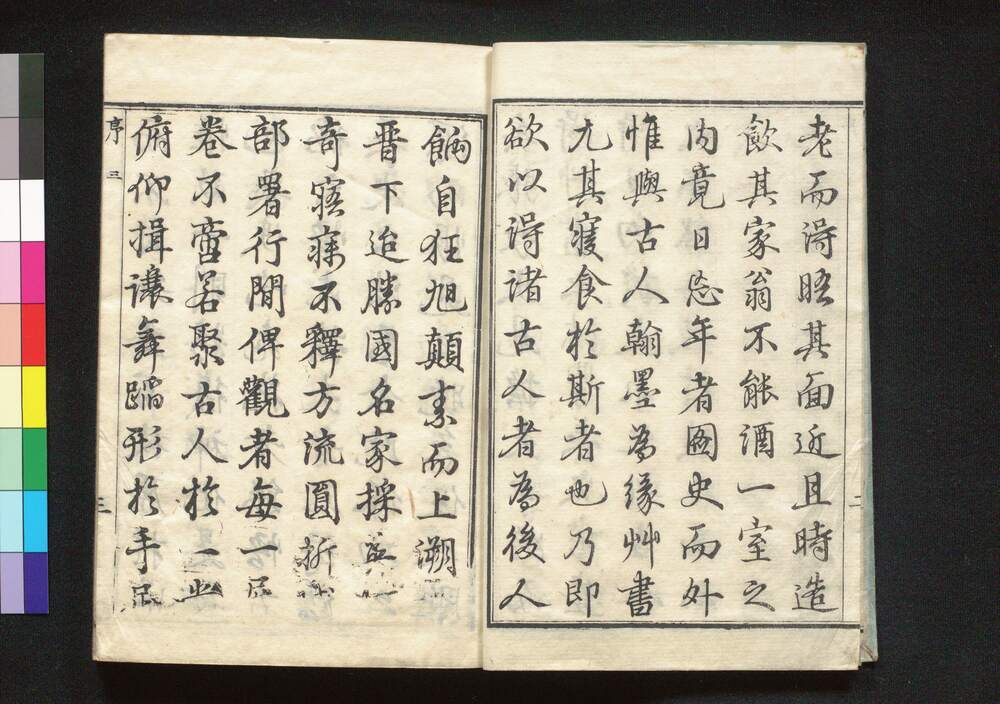 老而得晤其面近且時造
飲其家翁不能酒一室之
内竟日忘年者國史而外
惟與古人翰墨為緣艸書
尤其寢食於斯者也乃即
欲以得諸古人者為後人
二
餉自狂旭顛素而上溯
晉下迨勝國名家採
奇窮寐不釋方流圓折
部署行間俾觀者每一
卷不啻若聚古人於一
俯仰揖讓舞蹈形於手足
序 三
三